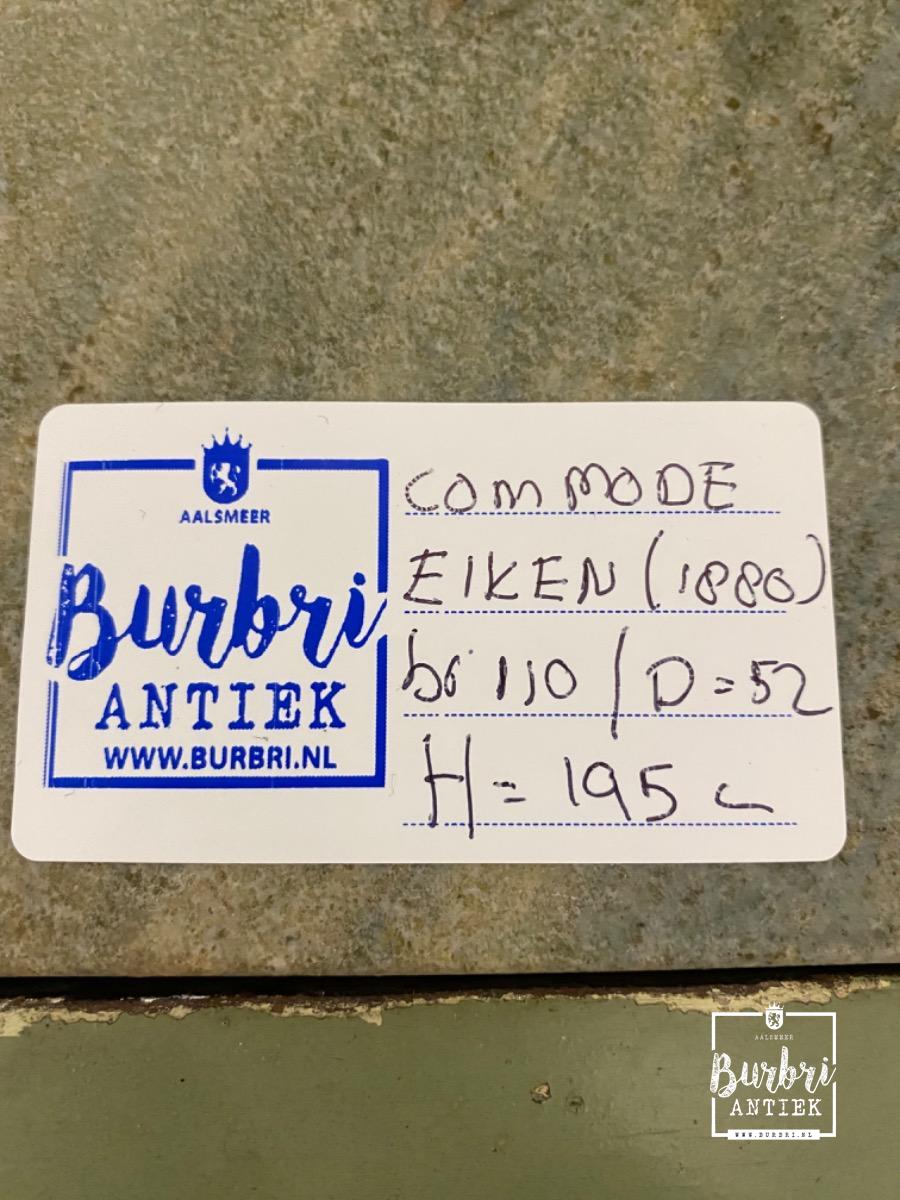 AALSMEER
Burbri
ANTIEK
WWW.BURBRI.NL
COMMODE
EIKEN (1880)
br 110 / D = 52
H = 195 c
AALSMEER
Burbri
ANTIEK
WWW.BURBRI.NL